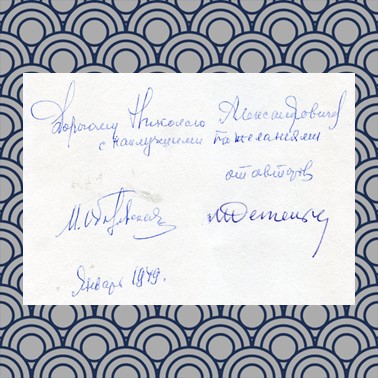 Дорогому Николаю Александровичу
с наилучшими пожеланиями
от авторов
Январь 1979.